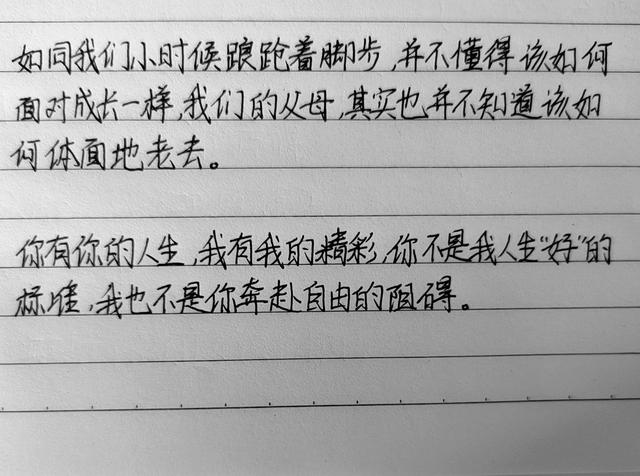 如同我们小时候踉跄着脚步,并不懂得该如何
面对成长一样,我们的父母,其实也并不知道该如
何体面地老去。
你有你的人生,我有我的精彩,你不是我人生“好”的
标准,我也不是你奔赴自由的阻碍。